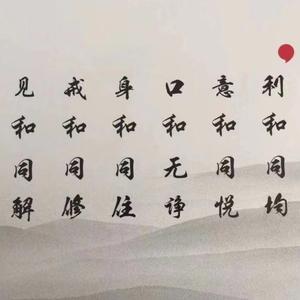 见和同解
戒和同修
身和同住
口和无诤
意和同悦
利和同均